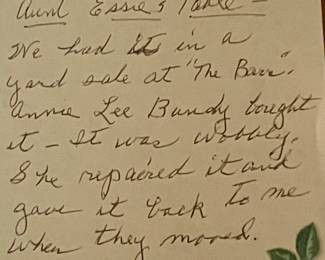 Aunt Essie's Table -
We had it in a
yard sale at "The Barn".
Annie Lee Bundy bought
it - It was wobbly.
She repaired it and
gave it back to me
when they moved.